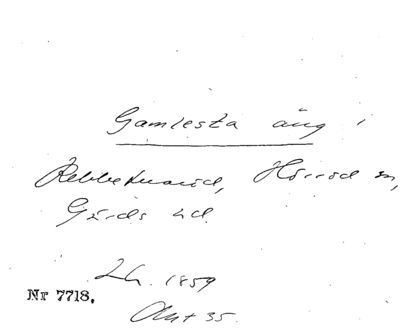 Gamlesta äng i
Rebbetuaröd, Hörröd sn,
Gärds hd.
Lh. 1859
Nr 7718.
Akt 35.